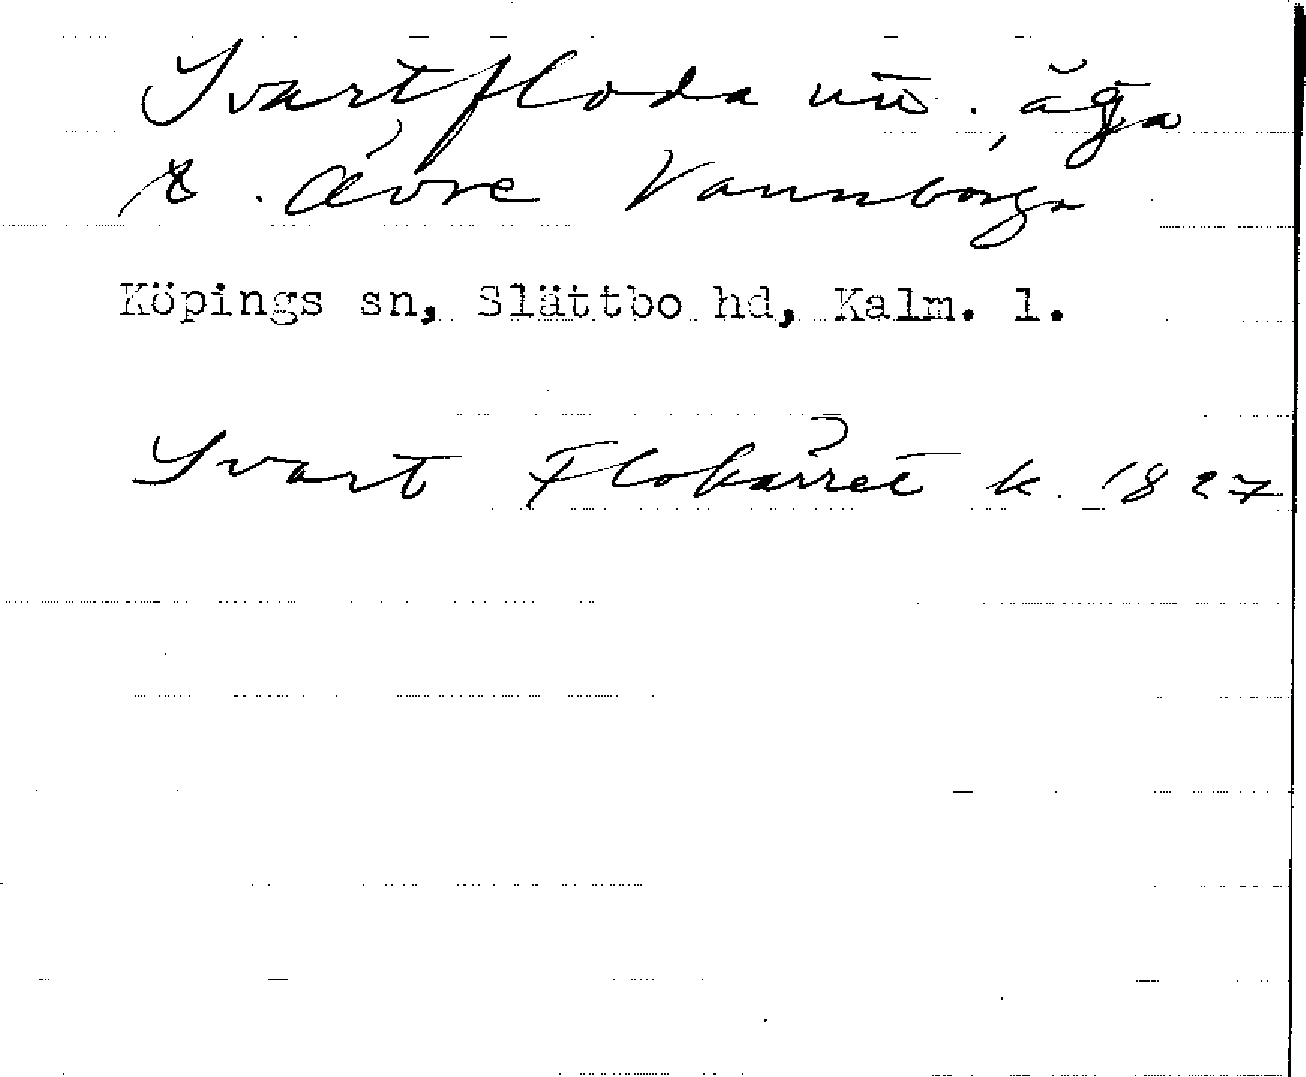 Svartfloda utm., äga
t. Övre Vannborga
Köpings sn, Slättbo hd, Kalm. l.
Svart Flokärret k. 1827